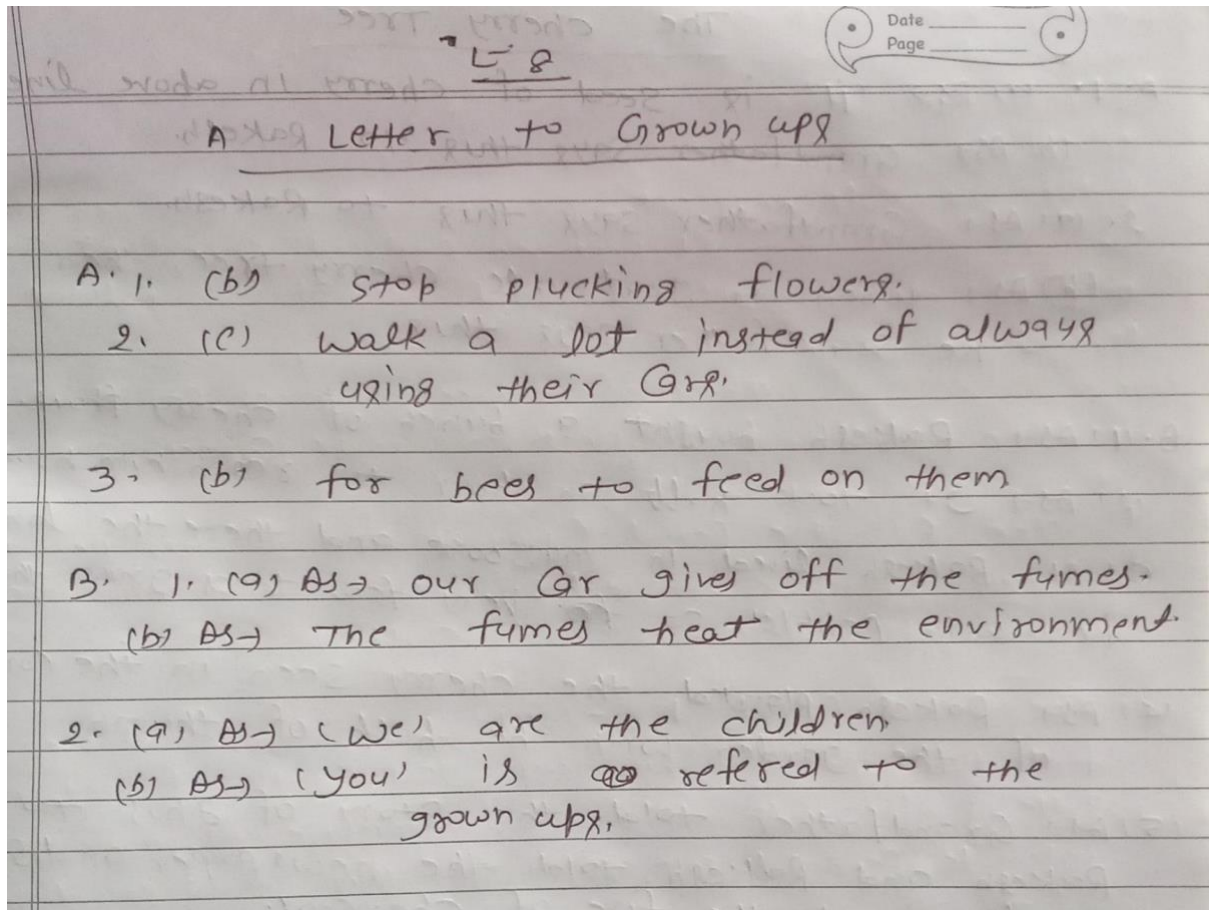 Date
Page
L-8
A Letter to Grown ups
A. 1. (b) stop plucking flowers.
2. (c) walk a lot instead of always
using their Cars.
3. (b) for bees to feed on them
B. 1. (a) As→ our Car gives off the fumes.
(b) As→ The fumes heat the environment.
2. (a) As→ (we) are the children
(b) As→ (you) is refered to the
grown ups.